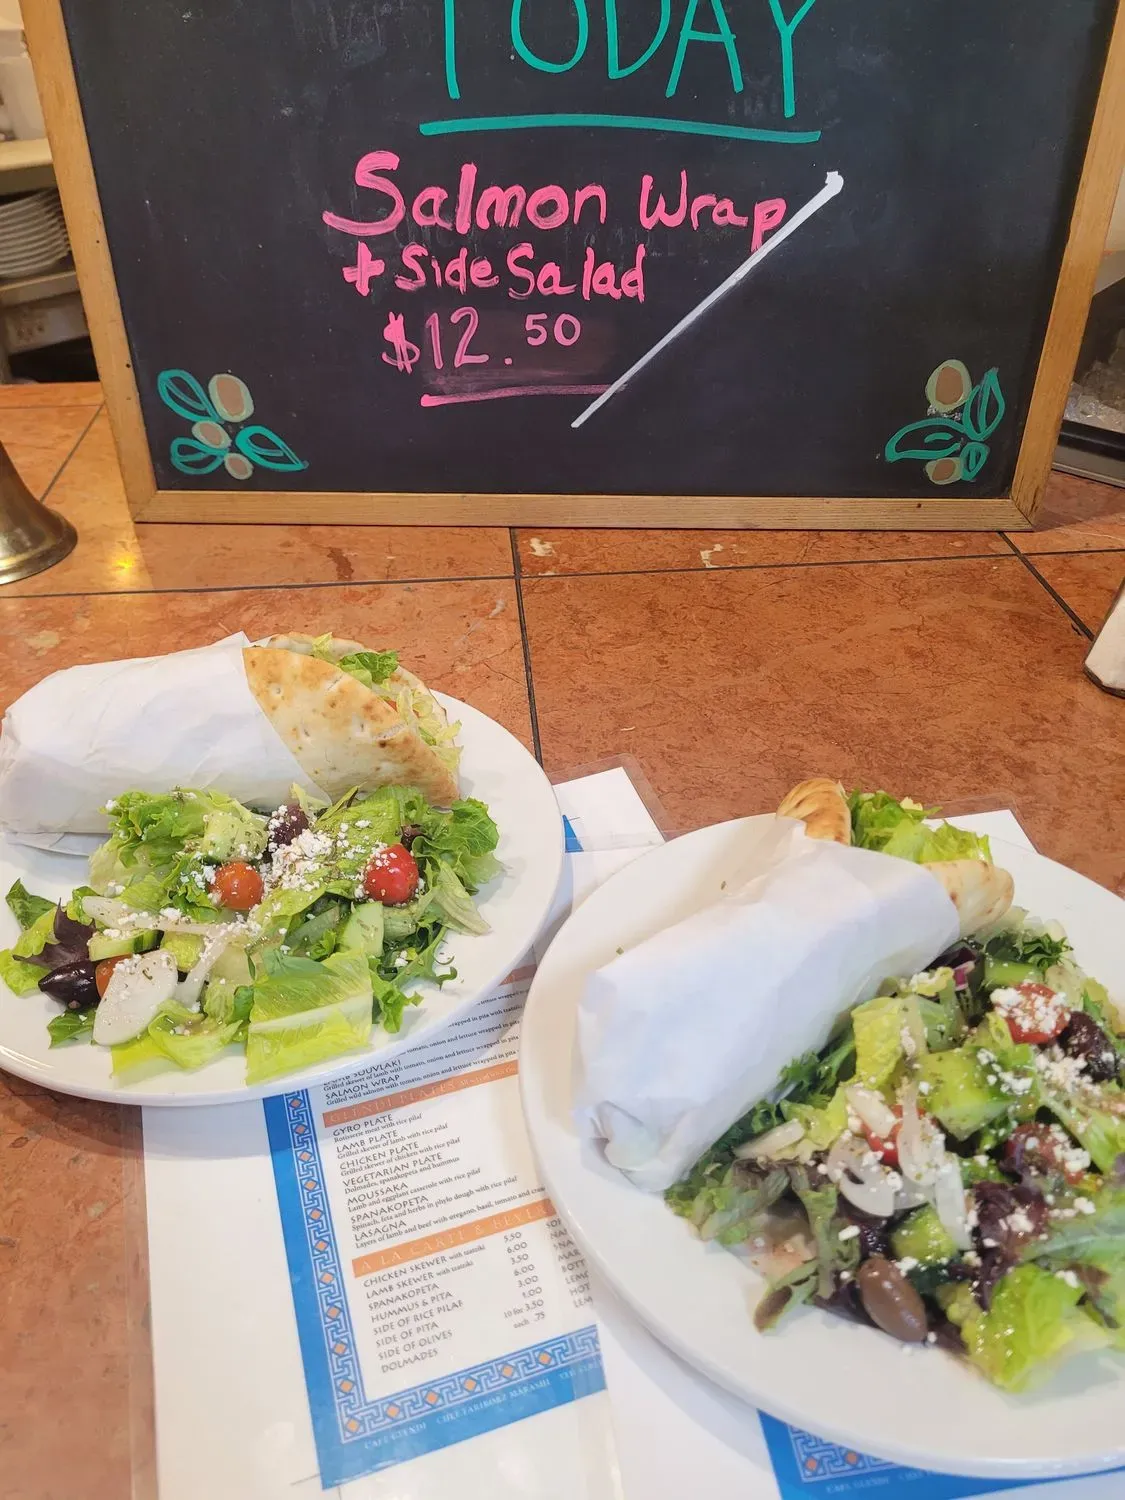 TODAY
Salmon Wrap
+ Side Salad
$12.50
wrapped in pita with tzatziki
tomato, onion and lettuce wrapped
LAMB SOUVLAKI
Grilled skewer of lamb with tomato, onion and lettuce wrapped in pita
SALMON WRAP
Grilled wild salmon with tomato, onion and lettuce wrapped in pita
GLENDI PLATES
GYRO PLATE
Rotisserie meat with rice pilaf
LAMB PLATE
Grilled skewer of lamb with rice pilaf
CHICKEN PLATE
Grilled skewer of chicken with rice pilaf
VEGETARIAN PLATE
Dolmades, spanakopeta and hummus
MOUSSAKA
Lamb and eggplant casserole with rice pilaf
SPANAKOPETA
Spinach, feta and herbs in phylo dough with rice pilaf
LASAGNA
Layers of lamb and beef with oregano, basil, tomato and
A LA CARTE & BEVER
CHICKEN SKEWER with tzatziki 5.50
LAMB SKEWER with tzatziki 6.00
SPANAKOPETA 3.50
HUMMUS & PITA 6.00
SIDE OF RICE PILAF 3.00
SIDE OF PITA 1.00
SIDE OF OLIVES 10 for 3.50
DOLMADES each .75
SNA
MAR
BOTT
LEMO
HOT
LEM
CAFE GLENDI
CAFE GLENDI